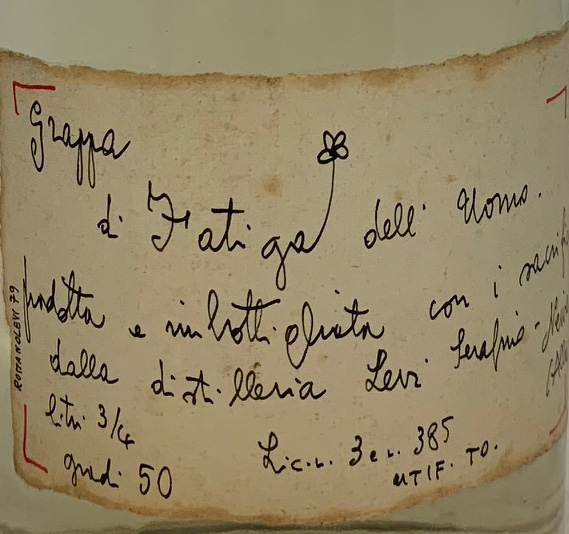 Grappa
di Fatiga dell' Uomo.
prodotta e imbottigliata con i
dalla distilleria Levi Serafino -
litri 3/4
gradi 50
Lic. L. 3 e L. 385
UTIF. TO.
ROMANO LEVI 79